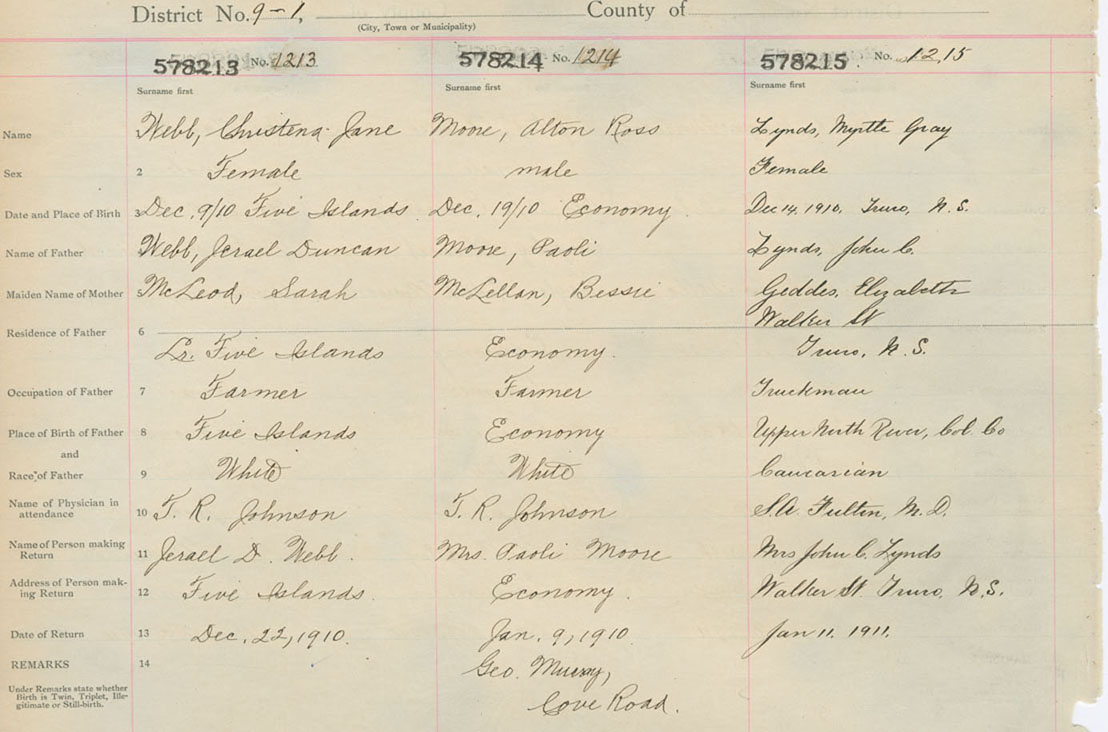 District No. 9-1, County of
(City, Town or Municipality)
578213 No. 1213 578214 No. 1214 578215 No. 1215
Surname first Surname first Surname first
Name Webb, Christena Jane Moore, Alton Ross Lynds, Myrtle Gray
Sex 2 Female male Female
Date and Place of Birth 3 Dec. 9/10 Five Islands Dec. 19/10 Economy Dec 14, 1910, Truro, N.S.
Name of Father Webb, Jerael Duncan Moore, Paoli Lynds, John C.
Maiden Name of Mother 5 McLeod, Sarah McLellan, Bessie Geddes, Elizabeth
Walker St
Residence of Father 6
Lr. Five Islands Economy. Truro, N.S.
Occupation of Father 7 Farmer Farmer Truckman
Place of Birth of Father 8 Five Islands Economy Upper North River, Col. Co
and
Race of Father 9 White White Caucasian
Name of Physician in
attendance 10 T. R. Johnson T. R. Johnson Fulton, M.D.
Name of Person making
Return 11 Jerael D. Webb. Mrs. Paoli Moore Mrs John C. Lynds
Address of Person mak-
ing Return 12 Five Islands. Economy. Walker St Truro, N.S.
Date of Return 13 Dec. 22, 1910. Jan. 9, 1910. Jan 11. 1911.
REMARKS 14 Geo. Murray,
Under Remarks state whether
Birth is Twin, Triplet, Ille-
gitimate or Still-birth.
Cove Road.